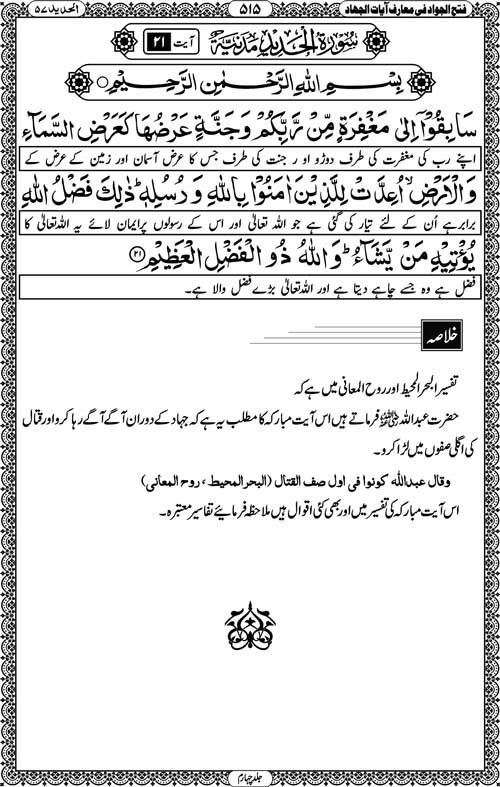 فتح الجواد فی معارف آیات الجهاد
۵۱۵
الحدید ۵۷
سُوْرَۃُ الْحَدِیْدِ مَدَنِیَّۃٌ
آیت ۲۱
بِسْمِ اللهِ الرَّحْمٰنِ الرَّحِیْمِ
سَابِقُوْٓا اِلٰى مَغْفِرَةٍ مِّنْ رَّبِّكُمْ وَ جَنَّةٍ عَرْضُهَا كَعَرْضِ السَّمَآءِ
اپنے رب کی مغفرت کی طرف دوڑو او ر جنت کی طرف جس کا عرض آسمان اور زمین کے عرض کے
وَ الْاَرْضِ ۙ اُعِدَّتْ لِلَّذِیْنَ اٰمَنُوْا بِاللهِ وَ رُسُلِهٖ ؕ ذٰلِكَ فَضْلُ اللهِ
برابرہے اُن کے لئے تیار کی گئی ہے جو اللہ تعالٰی اور اس کے رسولوں پرایمان لائے یہ اللہتعالٰی کا
یُؤْتِیْهِ مَنْ یَّشَآءُ ؕ وَ اللهُ ذُو الْفَضْلِ الْعَظِیْمِ ۲۱
فضل ہے وہ جسے چاہے دیتا ہے اور اللہتعالٰی بڑے فضل والا ہے۔
خلاصہ
تفسیر البحر المحیط اور روح المعانی میں ہے کہ
حضرت عبداللہ ؓ فرماتے ہیں اس آیت مبارکہ کا مطلب یہ ہے کہ جہاد کے دوران آگے آگے رہا کرو اور قتال
کی اگلی صفوں میں لڑا کرو۔
وقال عبدالله کونوا فی اول صف القتال (البحرالمحیط، روح المعانی)
اس آیت مبارکہ کی تفسیر میں اور بھی کئی اقوال ہیں ملاحظہ فرمائیے تفاسیر معتبرہ۔
جلد چہارم